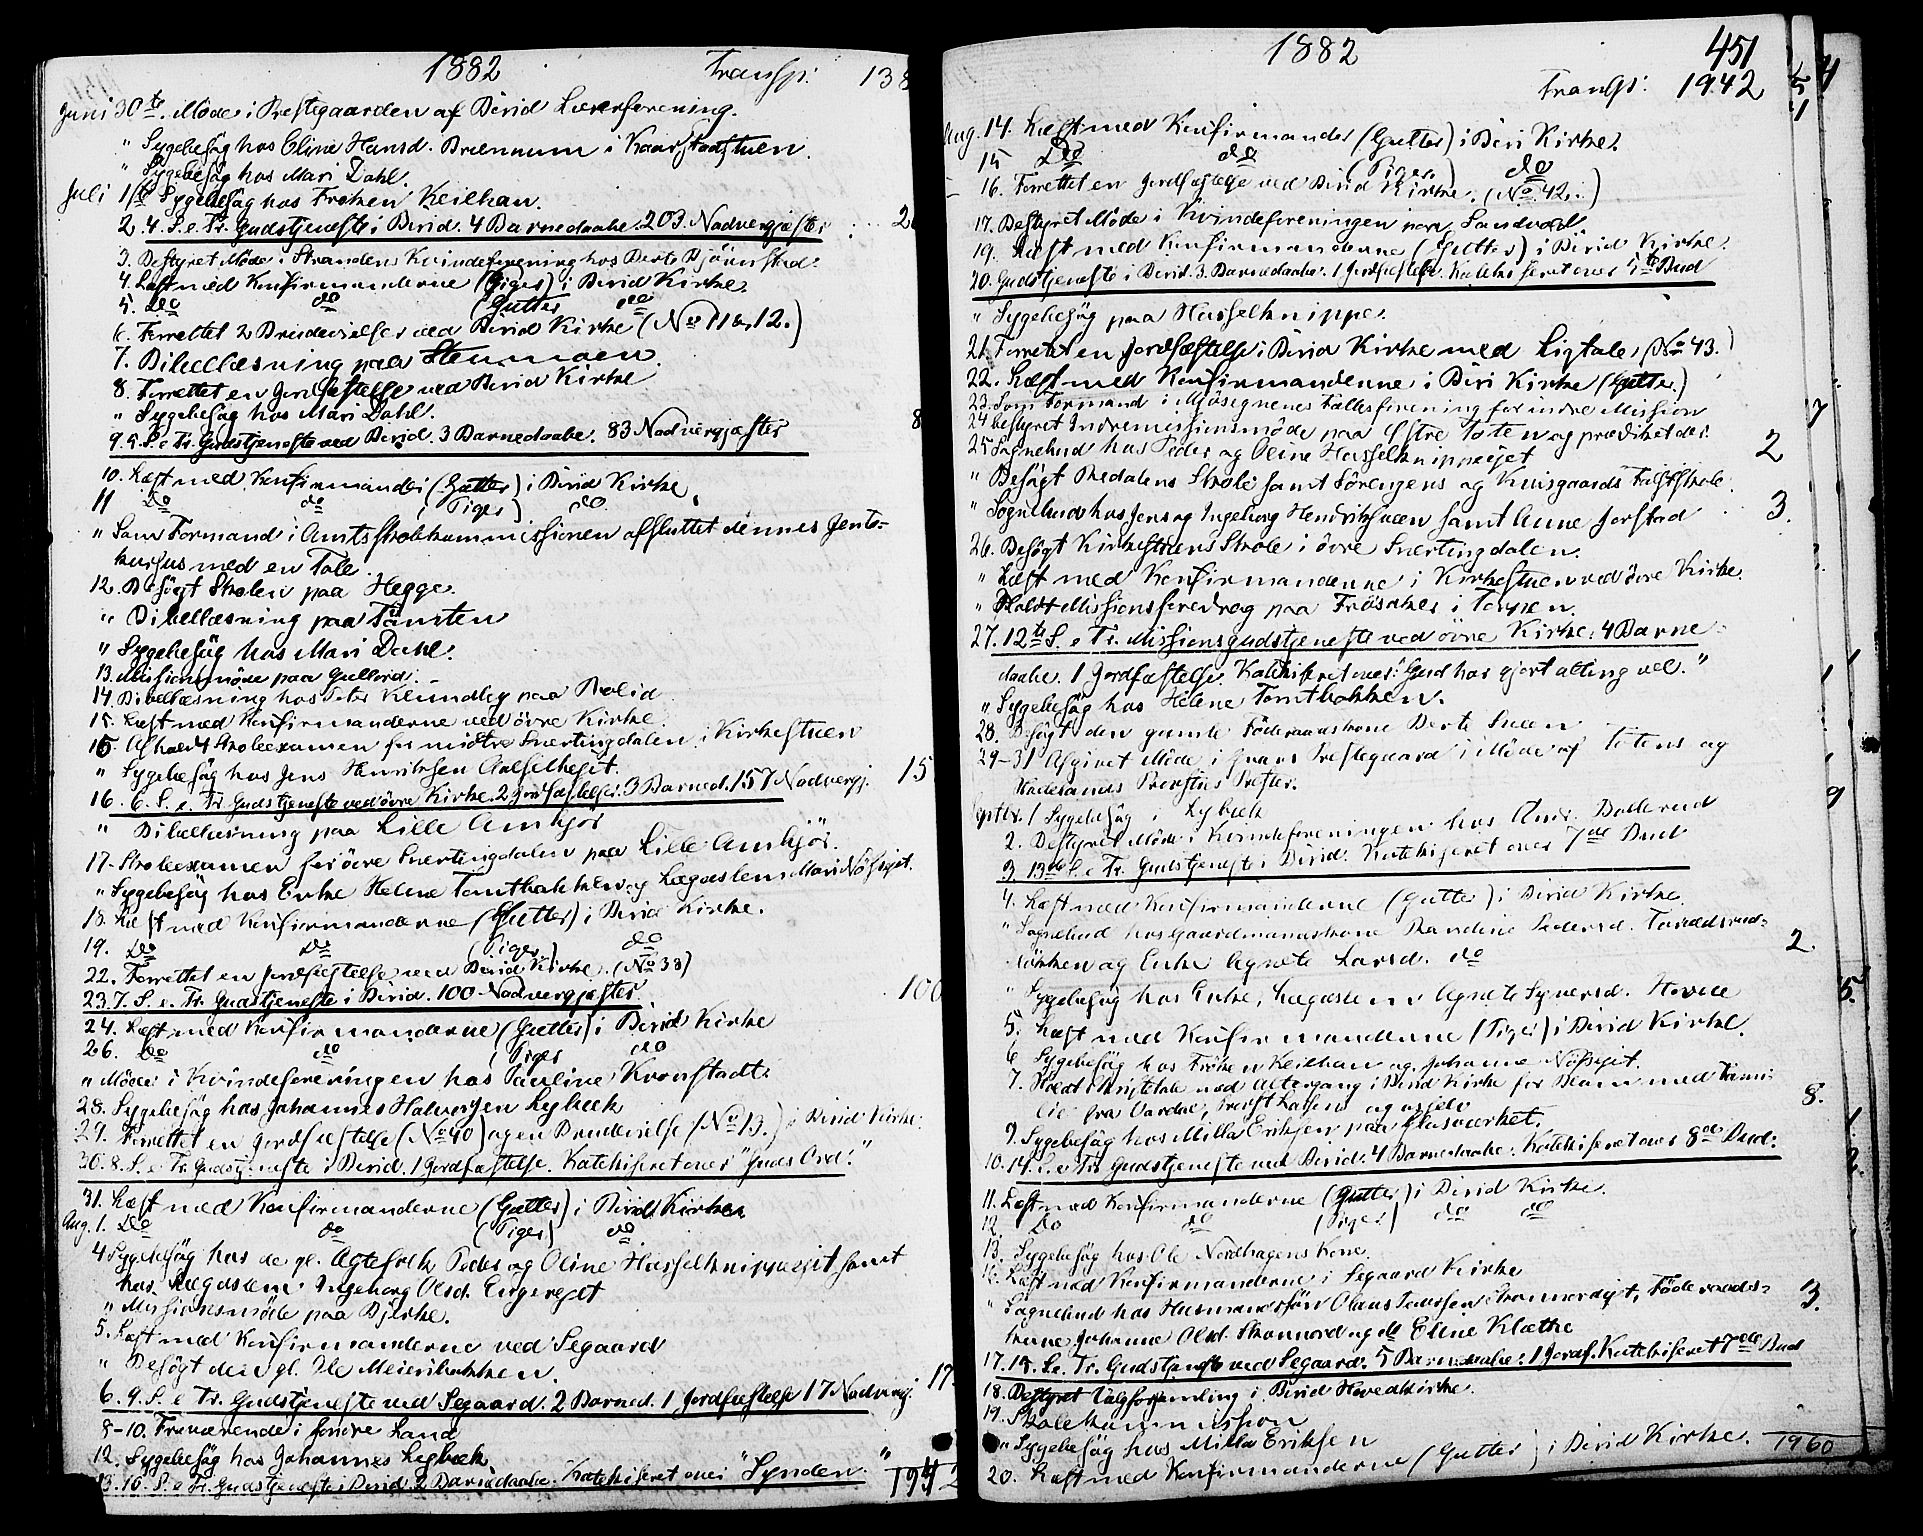 1882 Transp: 138
Juni 30te. Möde i Præstegaarden af Birid Lærerforening.
" Sygebesög hos Oline Hansd. Brænnum i Kaarstadstuen.
" Sygebesög hos Mari Dahl.
Juli 1ste Sygebesög hos Fröken Keilhau.
2. 4. S. e. Tr. Gudstjeneste i Birid. 4 Barnedaabe. 203 Nadvergjæster 2
3. Bestyret Möde i Strandens Kvindeforening hos Berte Björnstad.
4. Læst med Konfirmanderne (Piger) i Birid Kirke.
5. Do do (Gutter do
6. Forrettet 2 Brudevielser ved Birid Kirke (No 11 og 12.)
7. Bibellæsning paa Stenmoen.
8. Forrettet en Jordfæstelse ved Birid Kirke
" Sygebesög hos Mari Dahl.
9. 5. S. e Tr. Gudstjeneste ved Birid. 3 Barnedaabe. 83 Nadvergjæster 8
10. Læst med Konfirmander (Gutter) i Birid Kirke.
11 Do do (Piger) do
" Som Formand i Amtsskolekommissionen afsluttet dennes Jente-
kursus med en Tale.
12. Besögt Skolen paa Hegge.
" Bibellæsning paa Tömten
" Sygebesög hos Mari Dahl.
13. Missionsmöde paa Gullord.
14. Bibellæsning hos Peter Klundby paa Bolid
15. Læst med Konfirmanderne ved övre Kirke.
15. Afholdt Skoleexamen for midtre Snertingdalen i Kirkestuen
" Sygebesög hos Jens Henriksen Aalselheset.
16. 6. S. e. Tr. Gudstjeneste ved övre Kirke. 2 Jordfæstelser. 3 Barned. 157 Nadvergj. 15
" Bibellæsning paa Lille Amkjör
17. Skoleexamen for övre Snertingdalen paa Lille Amkjör.
" Sygebesög hos Enke Helene Tomtbakken og Lægdslem Mari Nöfseiet.
18. Læst med Konfirmanderne (Gutter) i Birid Kirke.
19. Do Do (Piger) do
22. Forrettet en Jordfæstelse ved Birid Kirke. (No 38)
23. 7. S. e. Tr. Gudstjeneste i Birid. 100 Nadvergjæster 100
24. Læst med Konfirmanderne (Gutter) i Birid Kirke
26. Do do (Piger do
" Möde i Kvindeforeningen hos Pauline Kronstadt.
28. Sygebesög hos Johannes Halvorsen Lybæk
29. Forrettet en Jordfæstelse (No 40) og en Brudevielse (No 13.) i Birid Kirke.
30. 8. S. e Tr. Gudstjeneste i Birid. 1 Jordfæstelse. Katekiseret over "Guds Ord."
31. Læst med Konfirmanderne (Gutter) i Birid Kirke.
Aug. 1. Do do (Piger) do
4 Sygebesög hos de gl. Ægtefolk Peder og Oline Hasselknippeeiet samt
hos Lægdslem Ingeborg Olsd. Engereiet
" Missionsmöde paa Bjerke.
5. Læst med Konfirmanderne ved Segaard
" Besögt den gl. Ole Meieribakken.
6. 9. S. e Tr. Gudstjeneste ved Segaard. 2 Barned. 1 Jordfæstelse 17 Nadvergj. 17.
8-10. Fraværende i søndre Land
12. Sygebesög hos Johannes Lybæk
13. 10. S. e Tr. Gudstjeneste i Birid. 2 Barnedaabe. Katekiseret over "Synden." 1942
1882 451
Transp: 1942
Aug. 14. Læst med Konfirmander (Gutter) i Biri Kirke.
15 Do do (Piger) do
16. Forrettet en Jordfæstelse ved Birid Kirke. (No 42.)
17. Bestyret Möde i Kvindeforeningen paa Sandvold
19. Læst med Konfirmanderne (Gutter) i Birid Kirke.
20. Gudstjeneste i Birid. 3. Barnedaabe. 1 Jordfæstelse. Katekiseret over 5te Bud
" Sygebesög paa Hasselknippe.
21. Forrettet en Jordfæstelse i Birid Kirke med Ligtale. (No 43.)
22. Læst med Konfirmanderne i Biri Kirke (Gutter.)
23. Som Formand i Mjösegnenes Fællesforening for indre Mission
24 Bestyret Indremissionsmöde paa Östre Toten og prædiket der.
25 Sognebud hos Peder og Oline Hasselknippeeiet 2
" Besögt Bredalens Skole samt Sörengens og Kuisgaards Faststskole.
" Sognebud hos Jens og Ingeborg Hendrikstuen samt Anne Jorstad 3.
26. Besögt Kirkestuens Skole i övre Snertingdalen.
" Læst med Konfirmanderne i Kirkestuen ved övre Kirke.
" Holdt Missionsforedrag paa Fröisaker i Torpen.
27. 12te S. e Tr. Missionsgudstjeneste ved övre Kirke. 4 Barne-
daabe. 1 Jordfæstelse. Katekiseret over: "Gud har gjort alting vel."
" Sygebesög hos Helene Tomtbakken.
28. Besögt den gamle Föderaadskone Berte Sveen
29-31 Afgivet Möde i Grans Præstegaard i Möde af Totens og
Hadelands Provstis Præster.
Septbr. 1 Sygebesög i Lybæk
2. Bestyret Möde i Kvindeforeningen hos Andr. Ballerud
3. 13de S. e Tr. Gudstjeneste i Birid. Katekiseret over 7de Bud
4. Læst med Konfirmanderne (Gutter) i Birid Kirke.
" Sognebud hos Gaardmandskone Randine Pedersd. Tovaldsrud-
lökken og Enke Agnete Larsd. do 2.
" Sygebesög hos Enke, Lægdslem Agnete Syversd. Hovde
5. Læst med Konfirmanderne (Piger) i Birid Kirke.
6 Sygebesög hos Fröken Keilhau og Johanne Nöfseiet.
7. Holdt Skriftetale med Altergang i Birid Kirke for Blom med Fami-
lie fra Vardal, Provst Lassen og os selv 8.
9. Sygebesög hos Milla Eriksen paa Glasværket.
10. 14. S. e Tr. Gudstjeneste ved Birid. 4 Barnedaabe. Katekiseret over 8de Bud.
11. Læst med Konfirmanderne (Gutter) i Birid Kirke.
12. Do do (Piger) do do
13. Sygebesög hos Ole Nordhagens Kone.
16. Læst med Konfirmanderne i Segaard Kirke
" Sognebud hos Husmandssön Olaus Pedersen Stomnereiet, Föderaads- 3.
kone Johanne Olsd. Skonnord og do Eline Klæthe
17. 15. S. e. Tr. Gudstjeneste ved Segaard. 5 Barnedaabe. 1 Jordf. Katekiseret 7de Bud
18. Bestyret Valgforsamling i Birid Hovedkirke.
19. Skolekommission
" Sygebesög hos Milla Eriksen
20. Læst med Konfirmanderne (Gutter) i Birid Kirke. 1960